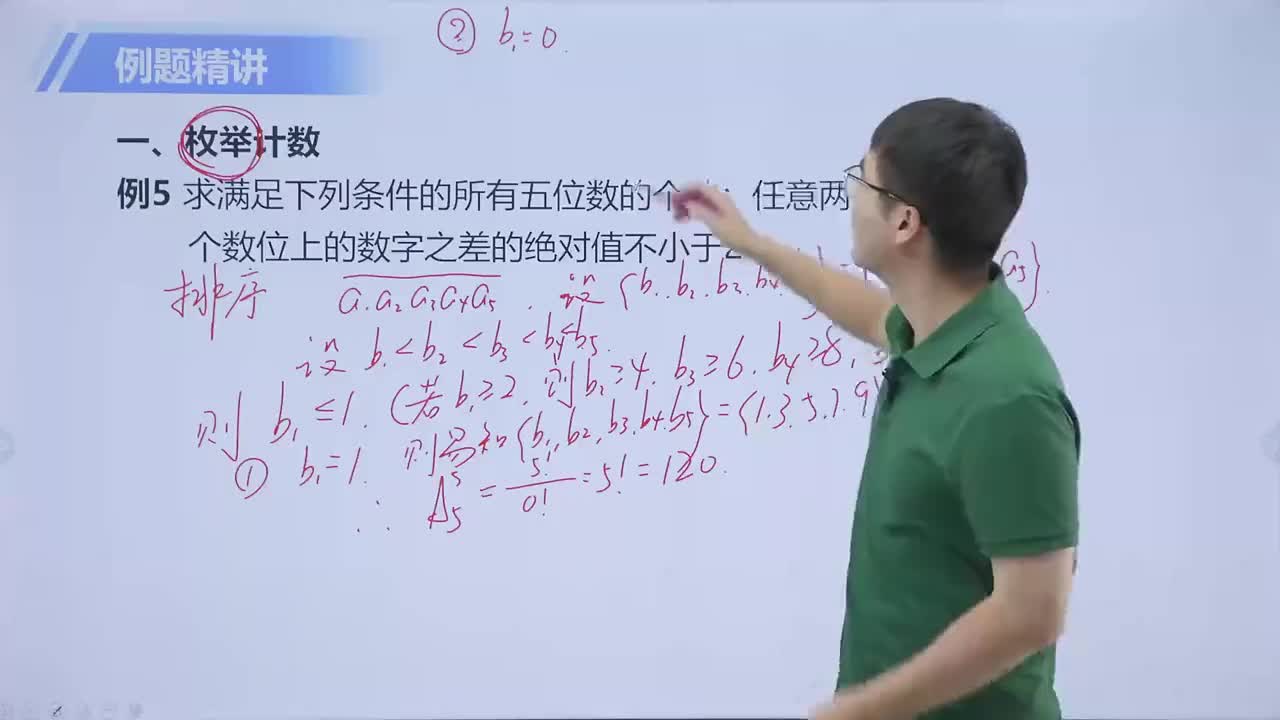 ② b₁=0.
例题精讲
一、枚举计数
例5 求满足下列条件的所有五位数的个 : 任意两
个数位上的数字之差的绝对值不小于2
排序 a₁a₂a₃a₄a₅ . 设{b₁.b₂.b₃.b₄. a₅}.
设 b₁<b₂<b₃<b₄<b₅.
则 b₁≤1. (若b₁≥2, 则b₂≥4. b₃≥6. b₄≥8,
① b₁=1. 则易知{b₁,b₂,b₃.b₄.b₅}={1.3.5.7.9}
∴ A₅⁵ = 5!/0! =5!=120.